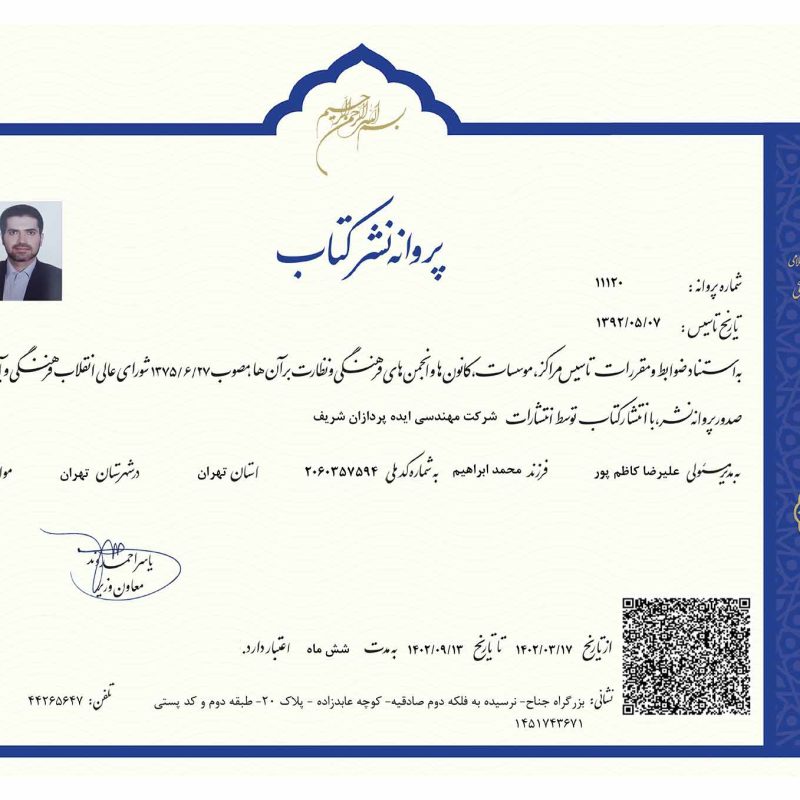 بسم الله الرحمن الرحیم
پروانه نشر کتاب
شماره پروانه: ۱۱۱۲۰
تاریخ تاسیس: ۱۳۹۲/۰۵/۰۷
به استناد ضوابط و مقررات تاسیس مراکز، موسسات، کانون ها و انجمن های فرهنگی و نظارت بر آن ها، مصوب ۱۳۷۵/۶/۲۷ شورای عالی انقلاب فرهنگی و
صدور پروانه نشر، با انتشار کتاب توسط انتشارات شرکت مهندسی ایده پردازان شریف
به مدیر مسئولی علیرضا کاظم پور فرزند محمد ابراهیم به شماره کد ملی ۲۰۶۰۳۵۷۵۹۴ استان تهران در شهرستان تهران
یاسر احمدوند
معاون وزیر
از تاریخ ۱۴۰۲/۰۳/۱۷ تا تاریخ ۱۴۰۲/۰۹/۱۳ به مدت شش ماه اعتبار دارد.
نشانی: بزرگراه جناح- نرسیده به فلکه دوم صادقیه- کوچه عابدزاده - پلاک ۲۰- طبقه دوم و کد پستی
۱۴۵۱۷۴۳۶۷۱
تلفن: ۴۴۲۶۵۶۴۷